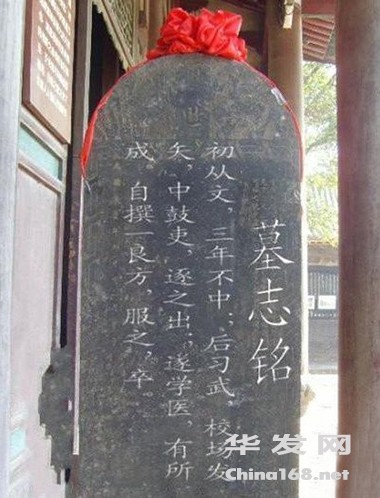 墓志铭
初从文，三年不中；后习武，校场发
矢，中鼓吏，逐之出；遂学医，有所
成。自撰一良方，服之，卒。
华发网
China168.net